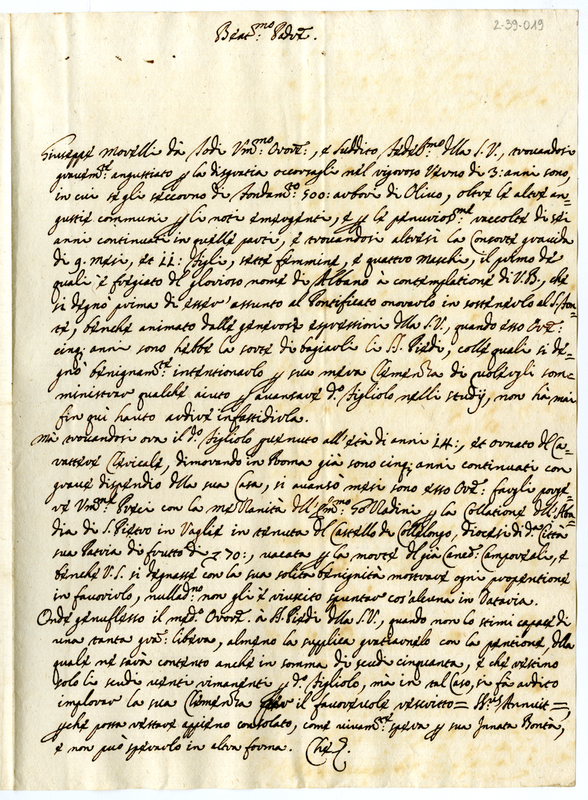 2-39-019
Beat.mo Padre.
Giuseppe Morelli da Todi Vm.mo Orore:, e suddito fedel.mo della S.V., trovandosi
gravem.te angustiato p la disgratia occorsagli nel vigoroso Verno di 3: anni sono,
in cui se gli seccorno di fondam.to 500: arbori di Olivo, oltre le altre an-
gustie communi p li noti emergenti, e p le penurios.me raccolte di sei
anni continuati in quelle parti, e trovandosi altresì la Consorte gravida
di 9. mesi, et 11: figli, sette femmine, e quattro maschi, il primo de
quali è fregiato del glorioso nome di Albano à contemplatione di V.B., che
si degnò prima di esser assunto al Pontificato onorarlo in sostenerlo al S. Fon-
te, benche animato dalle generose espressioni della S.V., quando esso Ore:
cinq; anni sono hebbe la sorte di bagiarli li SS. Piedi, colle quali si de-
gnò benignam.te intentionarlo p sua mera Clemenza di volergli som-
ministrar qualche aiuto p avansare d.o figliolo nelli studij, non hà mai
fin quì hauto ardire infastidirla.
Mà trovandosi ora il d.o figliolo pervenuto all'età di anni 14:, et ornato del Ca-
rattere Clericale, dimorando in Roma già sono cinq; anni continuati con
grave dispendio della sua Casa, si avansò mesi sono esso Ore: fargli porge-
re Vm.me Preci con la medianità dell'Em.mo Gozzadini p la Collatione dell'Aba-
dia di S. Pietro in Vaglie in tenuta del Castello de Collelongo, diocesi di d.a Città
sua Patria di frutto di 70:, vacata p la morte del già Caned: Camporeali, e
benche V.S. si degnasse con la sua solita benignità mostrare ogni propentione
in favorirlo, nulladi.no non gli è riuscito spuntar cos'alcuna in Dataria.
Onde genuflesso il med.o Orore: à SS. Piedi della S.V., quando non lo stimi capace di
una tanta gra: libera, almeno la supplica gratiarnelo con la pentione, della
quale ne sarà contento anche in somma di scudi cinquanta, e che restino
solo li scudi venti rimanenti p d.o figliolo, mà in tal Caso, si fà ardito
implorar la sua Clemenza p il favorevole rescritto = SS.mus Annuit =,
pche possa restare appieno consolato, come vivam.te spera p sua Innata Bontà,
e non può sperarlo in altra forma. Che &.